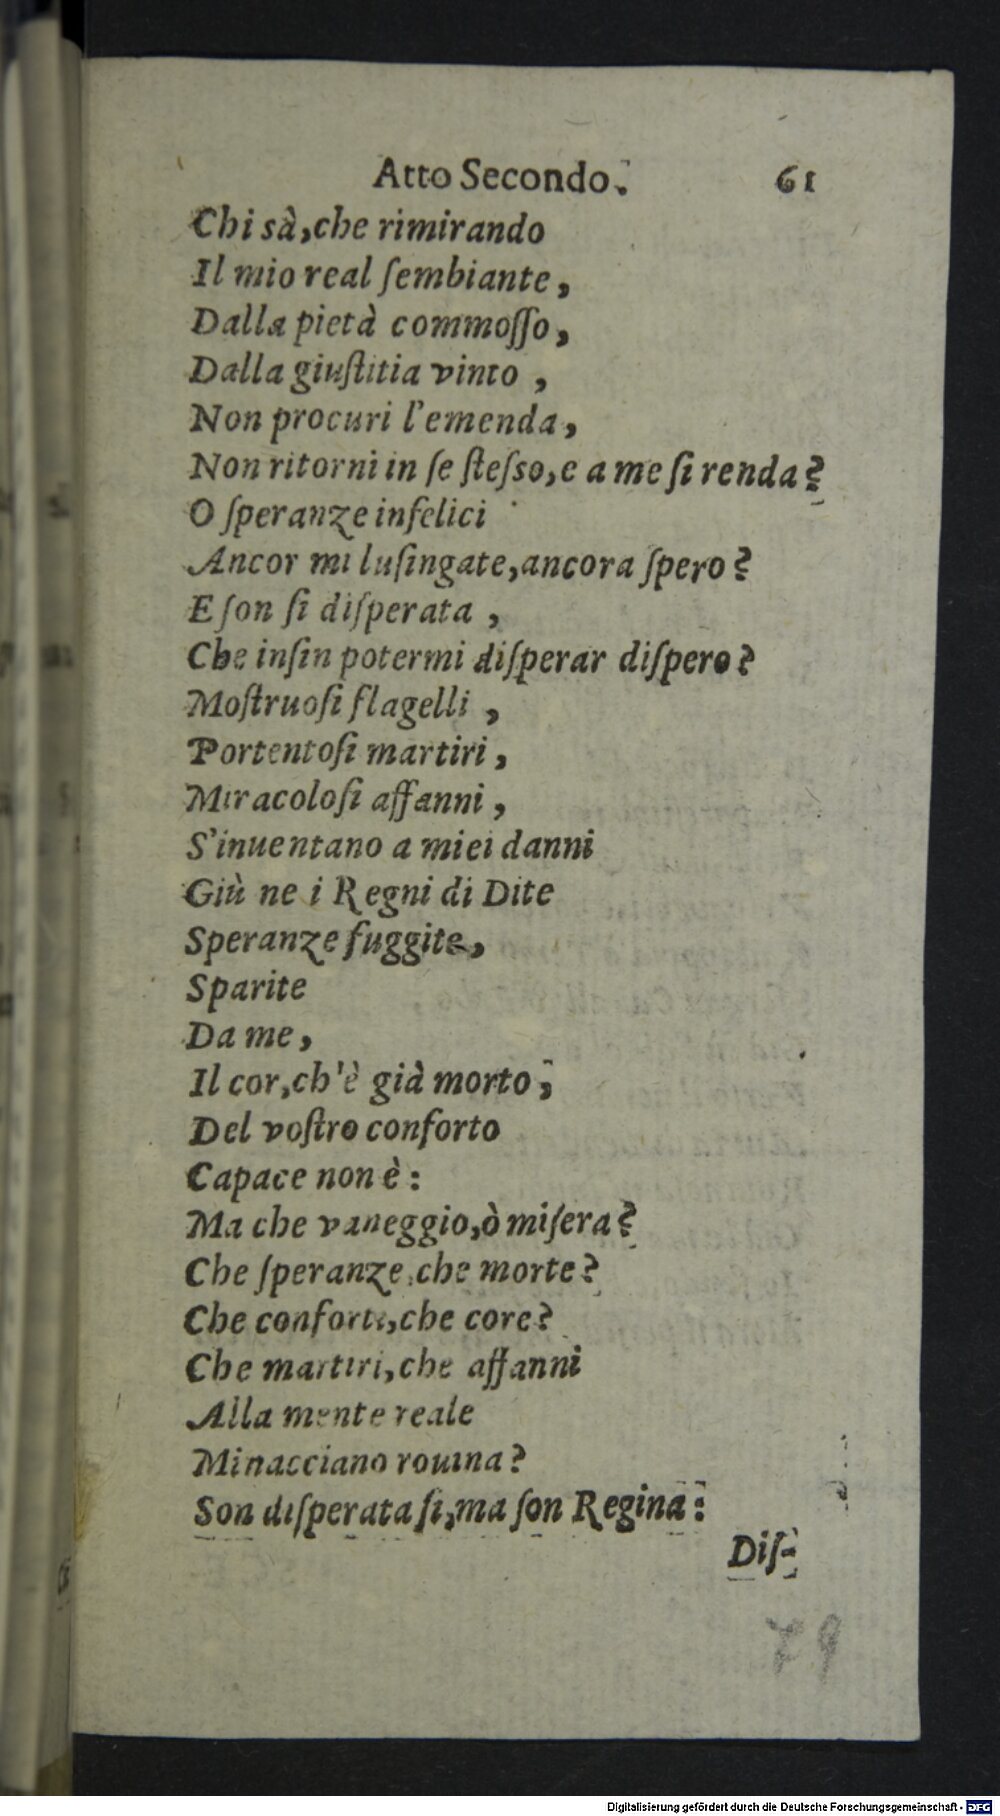 Atto Secondo. 61
Chi sà, che rimirando
Il mio real ſembiante,
Dalla pietà commoſſo,
Dalla giuſtitia vinto,
Non procuri l'emenda,
Non ritorni in ſe ſteſso, e a me ſi renda?
O ſperanze infelici
Ancor mi luſingate, ancora ſpero?
E ſon ſi diſperata,
Che inſin potermi diſperar diſpero?
Moſtruoſi flagelli,
Portentoſi martiri,
Miracoloſi affanni,
S'inuentano a miei danni
Giù ne i Regni di Dite
Speranze fuggite,
Sparite
Da me,
Il cor, ch'è già morto,
Del voſtro conforto
Capace non è:
Ma che vaneggio, ò miſera?
Che ſperanze, che morte?
Che conforti, che core?
Che martiri, che affanni
Alla mente reale
Minacciano rouina?
Son diſperata ſi, ma ſon Regina:
Diſ-
79
Digitalisierung gefördert durch die Deutsche Forschungsgemeinschaft - DFG